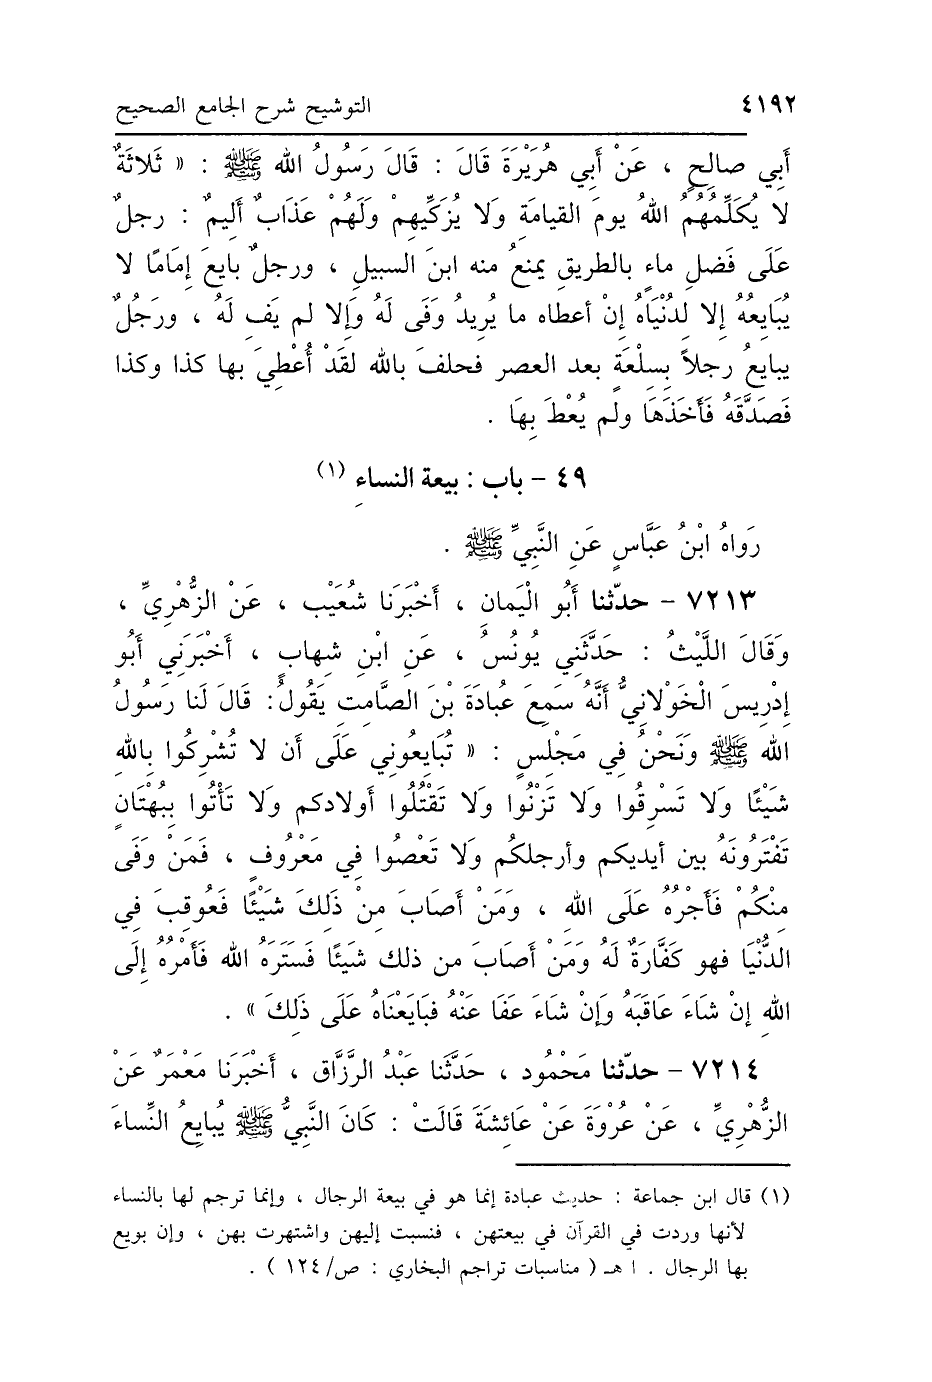 ٤١٩٢ التوشيح شرح الجامع الصحيح
أَبِي صالحٍ ، عَنْ أَبِي هُرَيْرَةَ قَالَ : قَالَ رَسُولُ الله ﷺ : « ثَلاثَةٌ
لا يُكَلِّمُهُمُ اللهُ يومَ القيامَةِ وَلا يُزَكِّيهِمْ وَلَهُمْ عَذَابٌ أَلِيمٌ : رجلٌ
عَلَى فَضلِ ماءٍ بالطريقِ يمنعُ منه ابنَ السبيلِ ، ورجلٌ بايعَ إِمَامًا لا
يُبَايِعُهُ إِلا لِدُنْيَاهُ إِنْ أعطاه ما يُرِيدُ وَفَى لَهُ وَإِلا لم يَفِ لَهُ ، ورَجُلٌ
يبايعُ رجلاً بِسِلْعَةٍ بعد العصرِ فحلفَ بالله لقَدْ أُعْطِيَ بها كذا وكذا
فَصَدَّقَهُ فَأَخَذَهَا ولم يُعْطَ بِهَا .
٤٩ - باب : بيعة النساءِ (١)
رَواهُ ابْنُ عَبَّاسٍ عَنِ النَّبِيِّ ﷺ .
٧٢١٣ - حدّثنا أَبُو الْيَمانِ ، أَخْبَرَنا شُعَيْب ، عَنْ الزُّهْرِيِّ ،
وَقَالَ اللَّيْثُ : حَدَّثَنِي يُونُسُ ، عَنِ ابْنِ شِهابٍ ، أَخْبَرَنِي أَبُو
إِدْرِيسَ الْخَوْلانِيُّ أَنَّهُ سَمِعَ عُبادَةَ بْنَ الصَّامِتِ يَقُولُ: قَالَ لَنا رَسُولُ
الله ﷺ وَنَحْنُ فِي مَجْلِسٍ : « تُبَايِعُوني عَلَى أن لا تُشْرِكُوا بِاللهِ
شَيْئًا وَلا تَسْرِقُوا وَلا تَزْنُوا وَلا تَقْتُلُوا أولادكم وَلا تَأْتُوا بِبُهْتَانٍ
تَفْتَرُونَهُ بين أيديكم وأرجلكُم وَلا تَعْصُوا فِي مَعْرُوفٍ ، فَمَنْ وَفَى
مِنْكُمْ فَأَجْرُهُ عَلَى اللهِ ، وَمَنْ أَصَابَ مِنْ ذَلِكَ شَيْئًا فَعُوقِبَ فِي
الدُّنْيَا فهو كَفَّارَةٌ لَهُ وَمَنْ أَصَابَ من ذلك شَيئًا فَسَتَرَهُ الله فَأَمْرُهُ إِلَى
اللهِ إِنْ شَاءَ عَاقَبَهُ وَإِنْ شَاءَ عَفَا عَنْهُ فبَايَعْنَاهُ عَلَى ذَلِكَ » .
٧٢١٤ - حدّثنا مَحْمُود ، حَدَّثَنا عَبْدُ الرَّزَّاق ، أَخْبَرَنا مَعْمَرٌ عَنْ
الزُّهْرِيِّ ، عَنْ عُرْوَةَ عَنْ عَائِشَةَ قَالَتْ : كَانَ النَّبِيُّ ﷺ يُبايِعُ النِّساءَ
(١) قال ابن جماعة : حديث عبادة إنما هو في بيعة الرجال ، وإنما ترجم لها بالنساء
لأنها وردت في القرآن في بيعتهن ، فنسبت إليهن واشتهرت بهن ، وإن بويع
بها الرجال . ا هـ ( مناسبات تراجم البخاري : ص/١٢٤ ) .